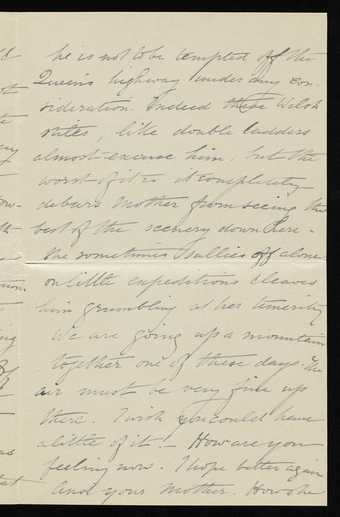 he is not to be tempted off the
Queen's highway under any con-
sideration. Indeed these Welsh
stiles, like double ladders
almost excuse him, but the
worst of it is it completely
debars Mother from seeing the
best of the scenery down here.
She sometimes sallies off alone
on little expeditions & leaves
him grumbling at her temerity
We are going up a mountain
together one of these days. The
air must be very fine up
there. I wish you could have
a little of it. — How are you
feeling now. I hope better again
and your Mother. How